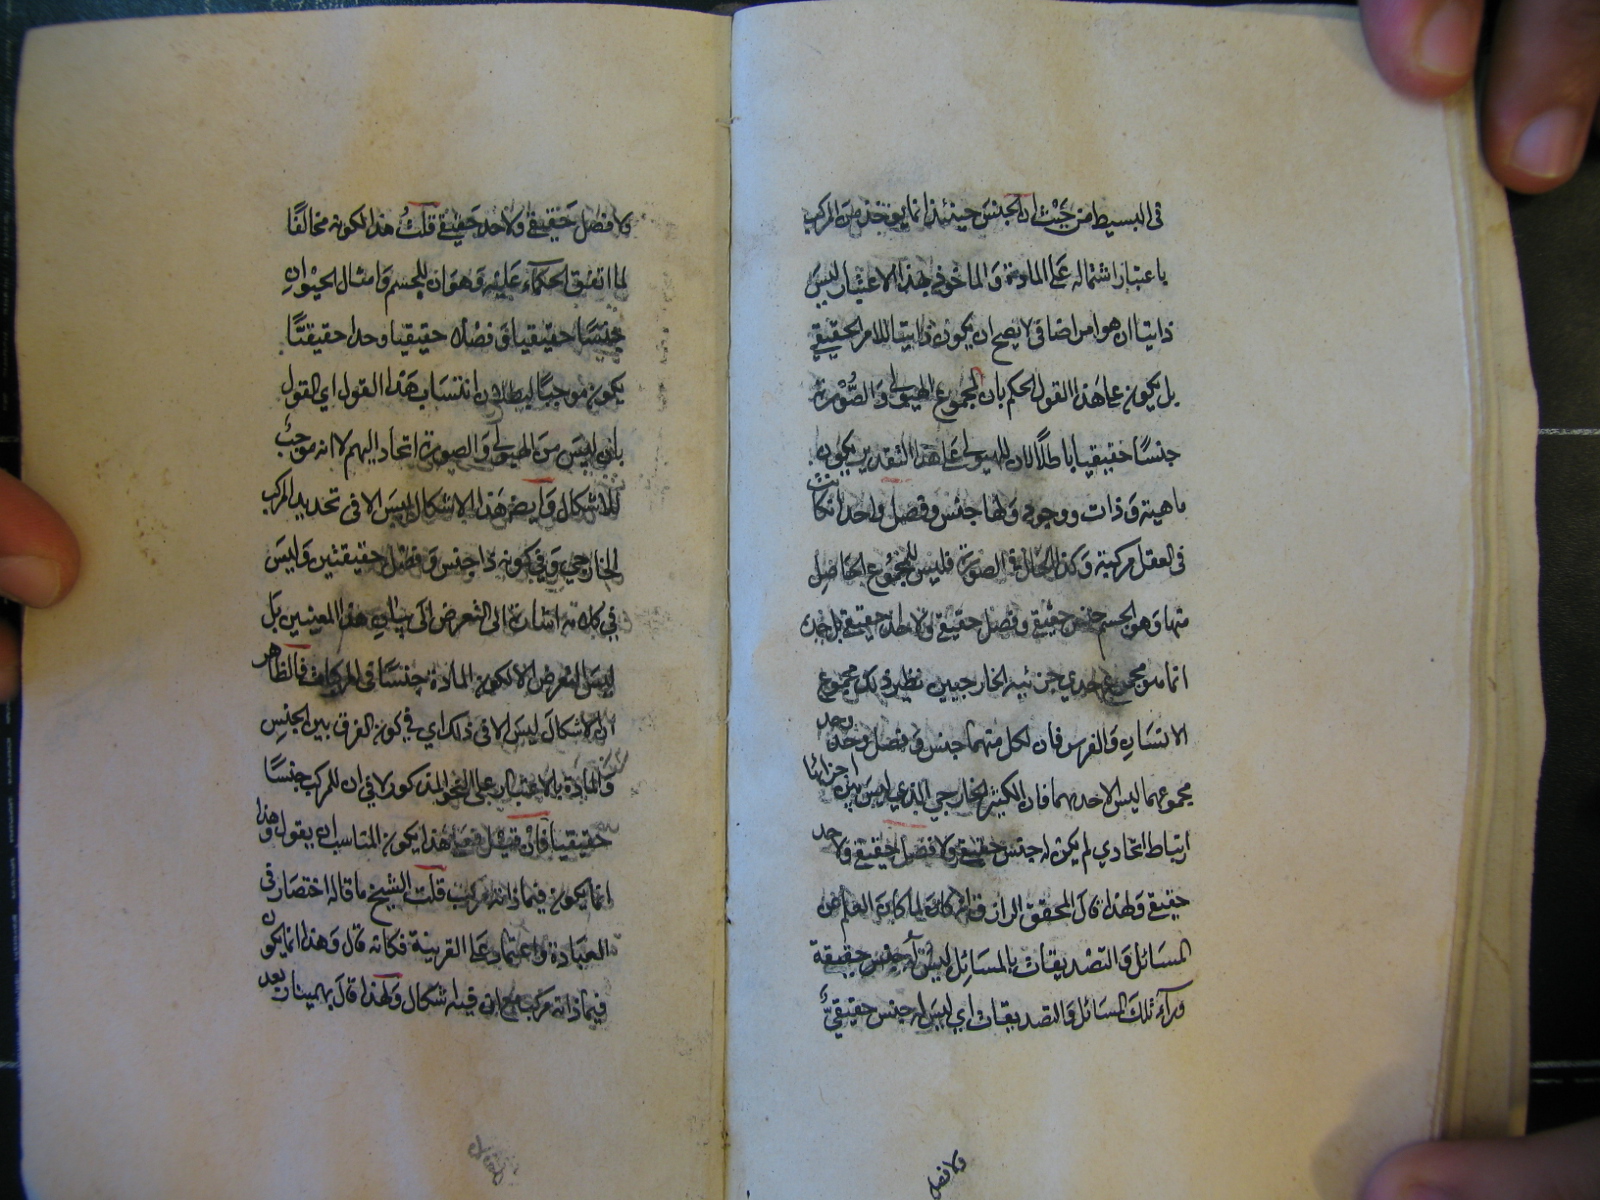 فى البسيط من حيث ان الجنس حينئذ انما يوخذ من المركب
باعتبار اشتماله على المادة والماخوذ بهذا الاعتبار ليس
ذاتيا ان هو امر اضافى لا يصح ان يكون ذاتيا للامر الحقيقي
بل يكون على هذا القول الحكم بان المجموع الهيولى والصورة
جنسا حقيقيا باطلا لان للهيولى على هذا التقدير يكون
ماهية وذات ووجود ولها جنس وفصل واحد انكانت
فى العقل مركبة وكذا الحال فى الصورة فليس للمجموع الحاصل
منها وهو الجسم جنس حقيقي وفصل حقيقي ولا حد حقيقي بل حده
انما هو مجموع حدي جزئيه الخارجيين نظير ذلك مجموع
الانسان والفرس فان لكل منهما جنس وفصل وحد وحد
مجموعهما ليس الا حديهما فان الكثير الخارجي الذي ليس بين اجزائها
ارتباط اتحادي لم يكن له جنس حقيقي ولا فصل حقيقي ولا حد
حقيقي ولهذا قال المحقق انكان العلم
المسائل والتصديقات بالمسائل ليس له جنس حقيقة
ورآء تلك المسائل والتصديقات اي ليس له جنس حقيقي
ولا فصل
ولا فصل حقيقي ولا حد حقيقي قلت هذا لكونه مخالفا
لما اتفق الحكماء عليه وهو ان للجسم وامثال الحيوان
جنسا حقيقيا وفصلا حقيقيا وحدا حقيقتا
يكون موجبا لبطلان انتساب هذا القول اي القول
بان ليس من الهيولى والصورة اتحاد اليهم لا انه موجب
للاشكال وايضا هذا الاشكال ليس الا فى تحديد المركب
الخارجي وفي كونه ذا جنس وفصل حقيقتين وليس
في كلامه اشارة الى التعرض الى هذا المعنيين بل
ليس التعرض الا لكون المادة جنسا فى المركبات فالظاهر
ان الاشكال ليس الا فى ذلك اي في كون الفرق بين الجنس
والمادة بالاعتبار على النحو المذكور لا في ان للمركب جنسا
حقيقيا فان قيل فعلى هذا يكون المناسب ان يقول وهذا
انما يكون فيما ذاته مركب قلت الشيخ ما قاله اختصار فى
العبادة واعتماد على القرينة فكانه قال وهذا انما يكون
فيما ذاته مركب مع ان فيه اشكال ولهذا قال بهمينار بعد